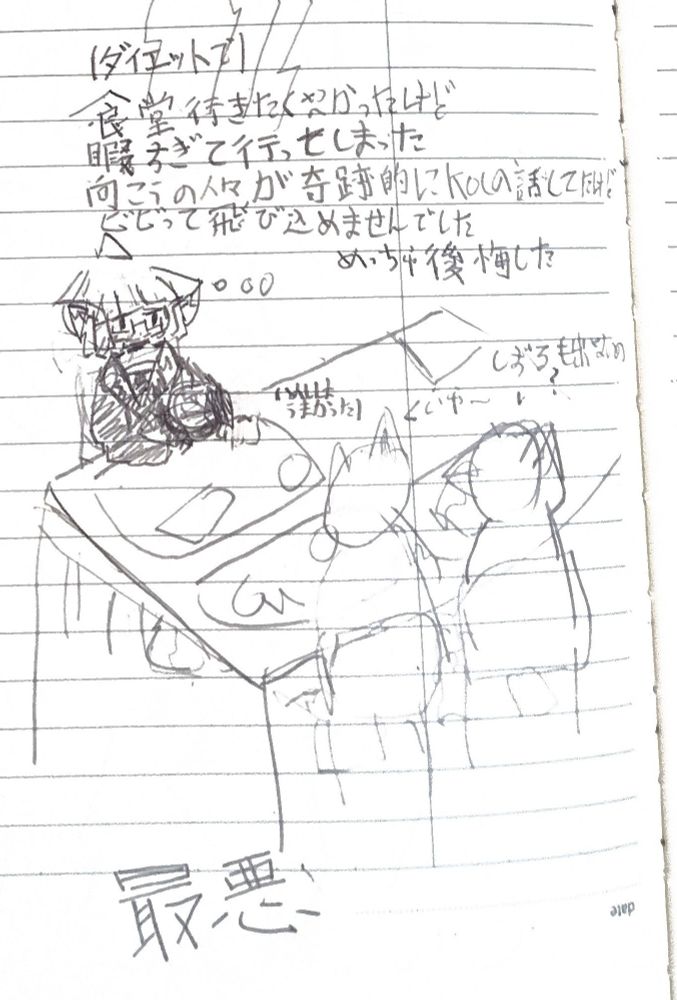 (ダイエットで)
食堂待きたくなかったけど
暇すぎて行ってしまった
向こうの人々が奇跡的にKOLの話してたけど
ビビって飛び込めませんでした
めっちゃ後悔した
うまかった)
くいや〜
しぼる
?
最悪
date